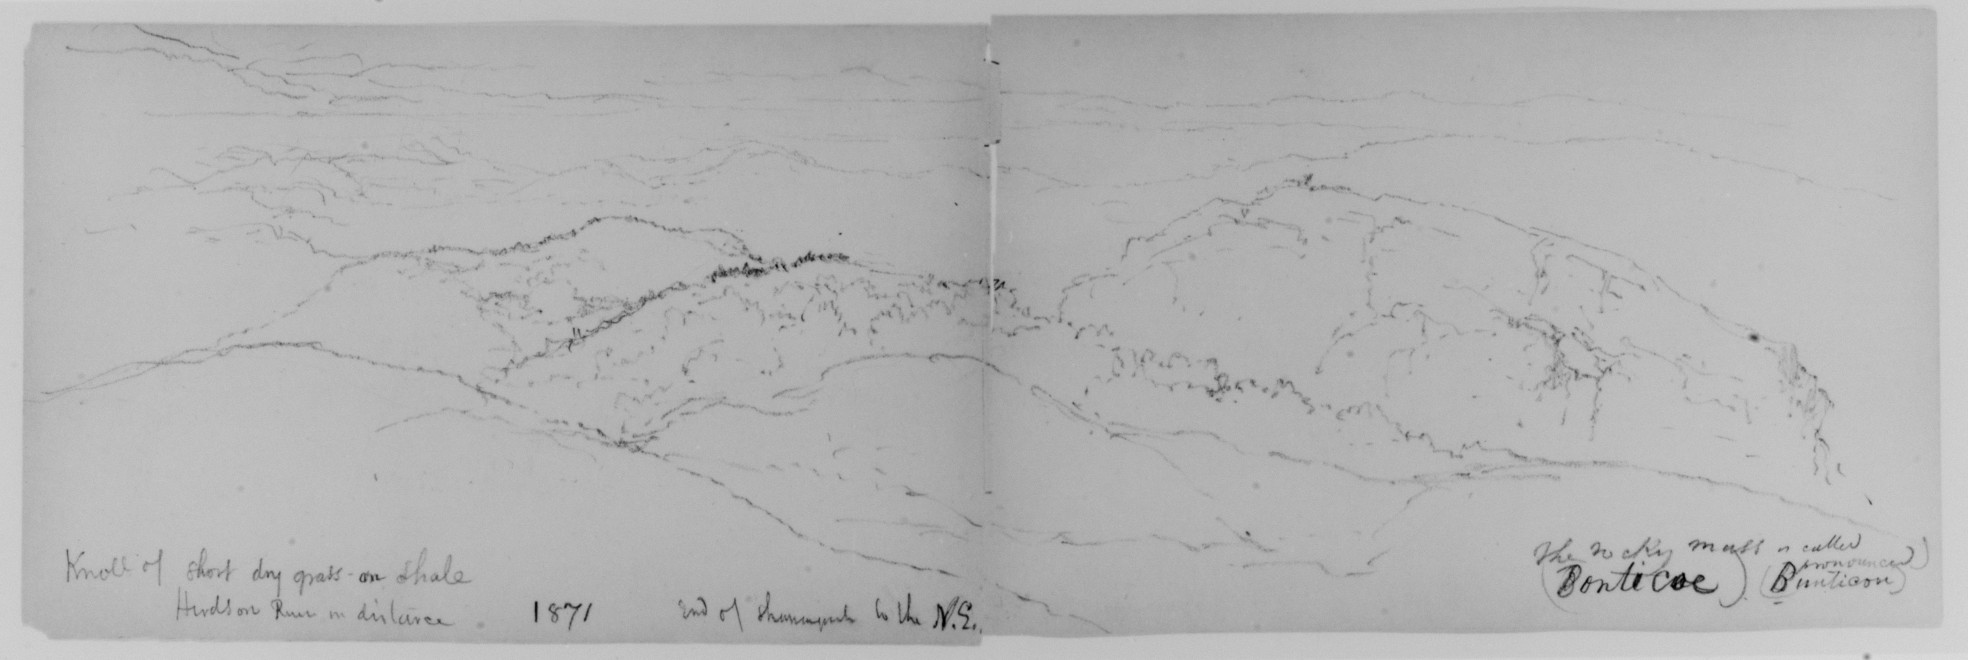 Knoll of short dry grass - on shale
Hudson River in distance
1871
End of to the N.E.
The rocky mass is called
(Bonticoe) (pronounced
Bunticou)